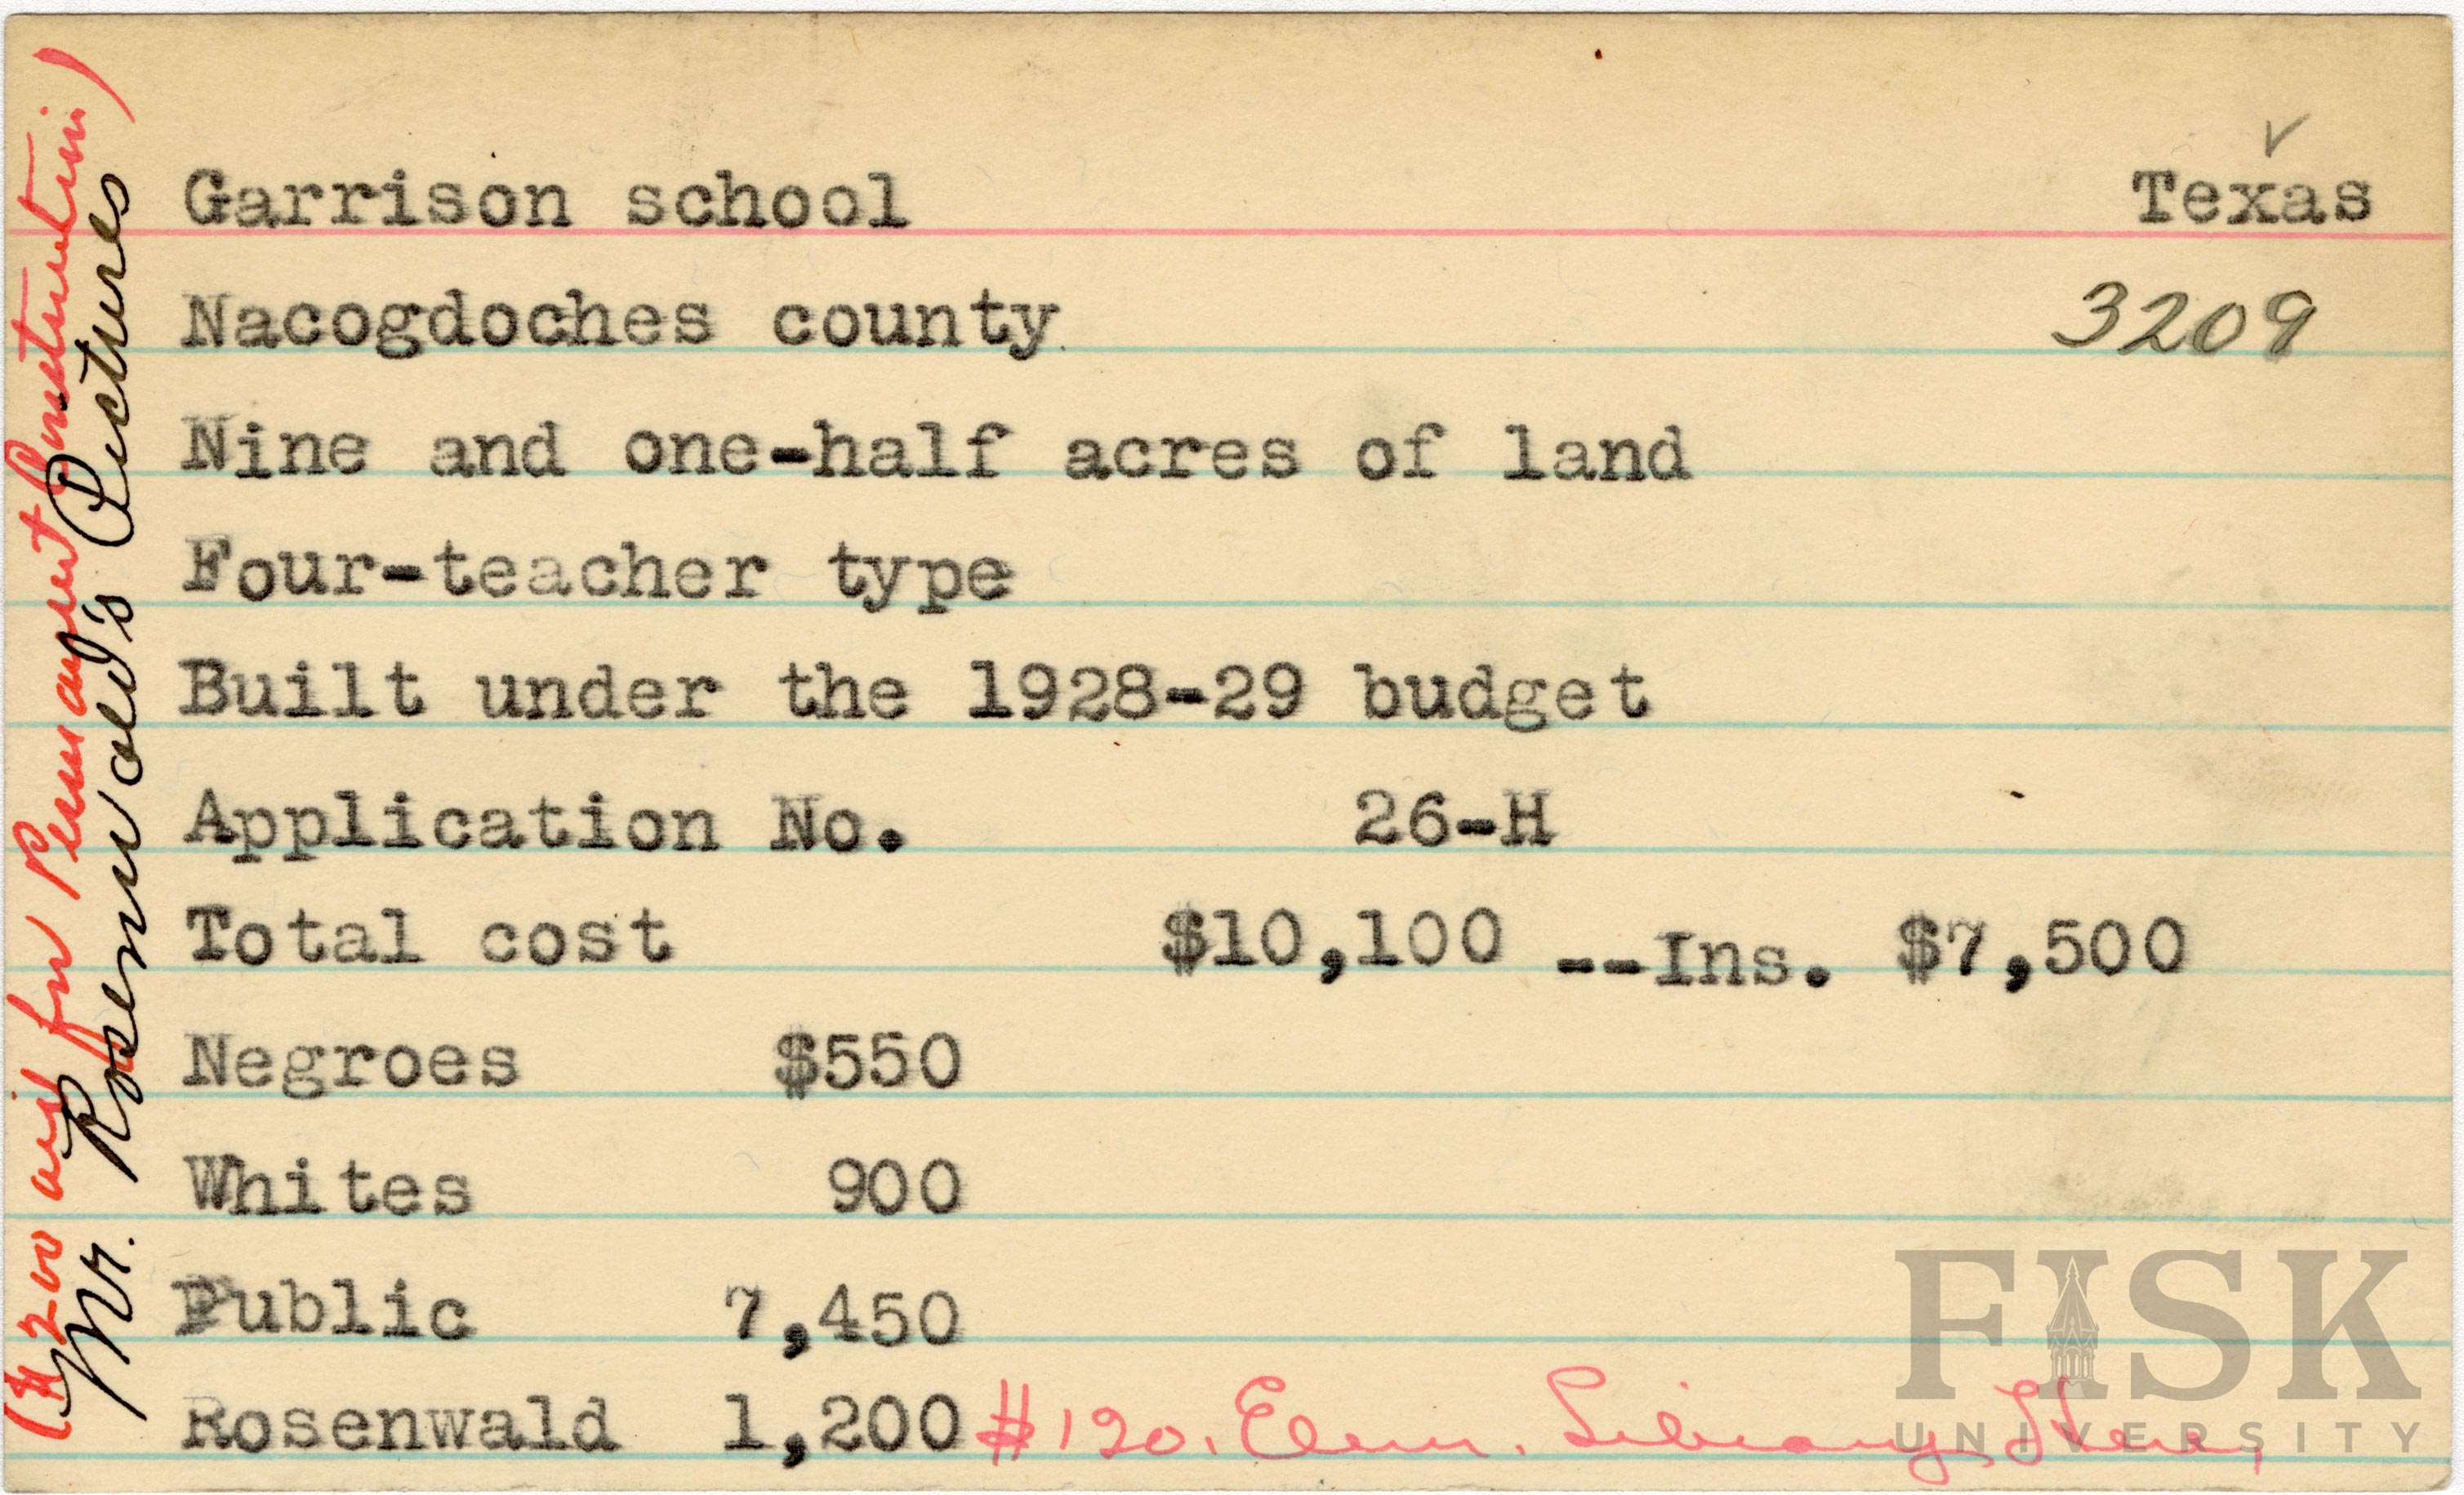 Garrison school Texas
Nacogdoches county 3209
Nine and one-half acres of land
Four-teacher type
Built under the 1928-29 budget
Application No. 26-H
Total cost $10,100 --Ins. $7,500
Negroes $550
Whites 900
Public 7,450
Rosenwald 1,200 #120. Elem. Library Here,
($200 aid for Permanent Construction)
Mr. Rosenwald's Pictures
FISK
UNIVERSITY